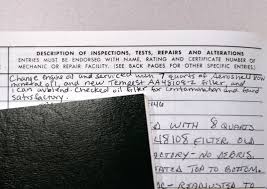 DESCRIPTION OF INSPECTIONS, TESTS, REPAIRS AND ALTERATIONS
ENTRIES MUST BE ENDORSED WITH NAME, RATING AND CERTIFICATE NUMBER OF
MECHANIC OR REPAIR FACILITY. (SEE BACK PAGES FOR OTHER SPECIFIC ENTRIES)
Change engine oil and serviced with 7 quarts of Aeroshell
mineral oil, and new Tempest AA48108-2 filter, and
1 can avblend. Checked oil filter for contamination and found
satisfactory.
D WITH 8 QUARTS
48108 FILTER. OLD
FACTORY - NO DEBRIS.
TOP TO BOTTOM
OR - READJUSTED TO